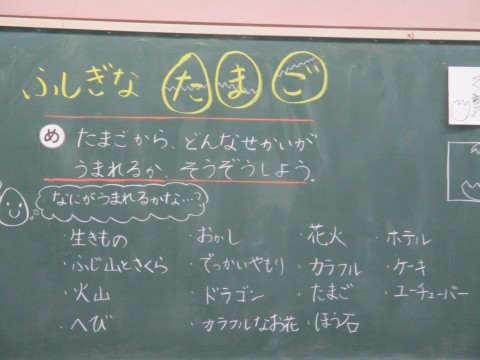 ふしぎな たまご
め たまごから、どんなせかいが
うまれるか、そうぞうしよう。
なにがうまれるかな…?
・生きもの ・おかし ・花火 ・ホテル
・ふじ山とさくら ・でっかいやもり ・カラフル ・ケーキ
・火山 ・ドラゴン ・たまご ・ユーチューバー
・へび ・カラフルなお花 ・ほう石